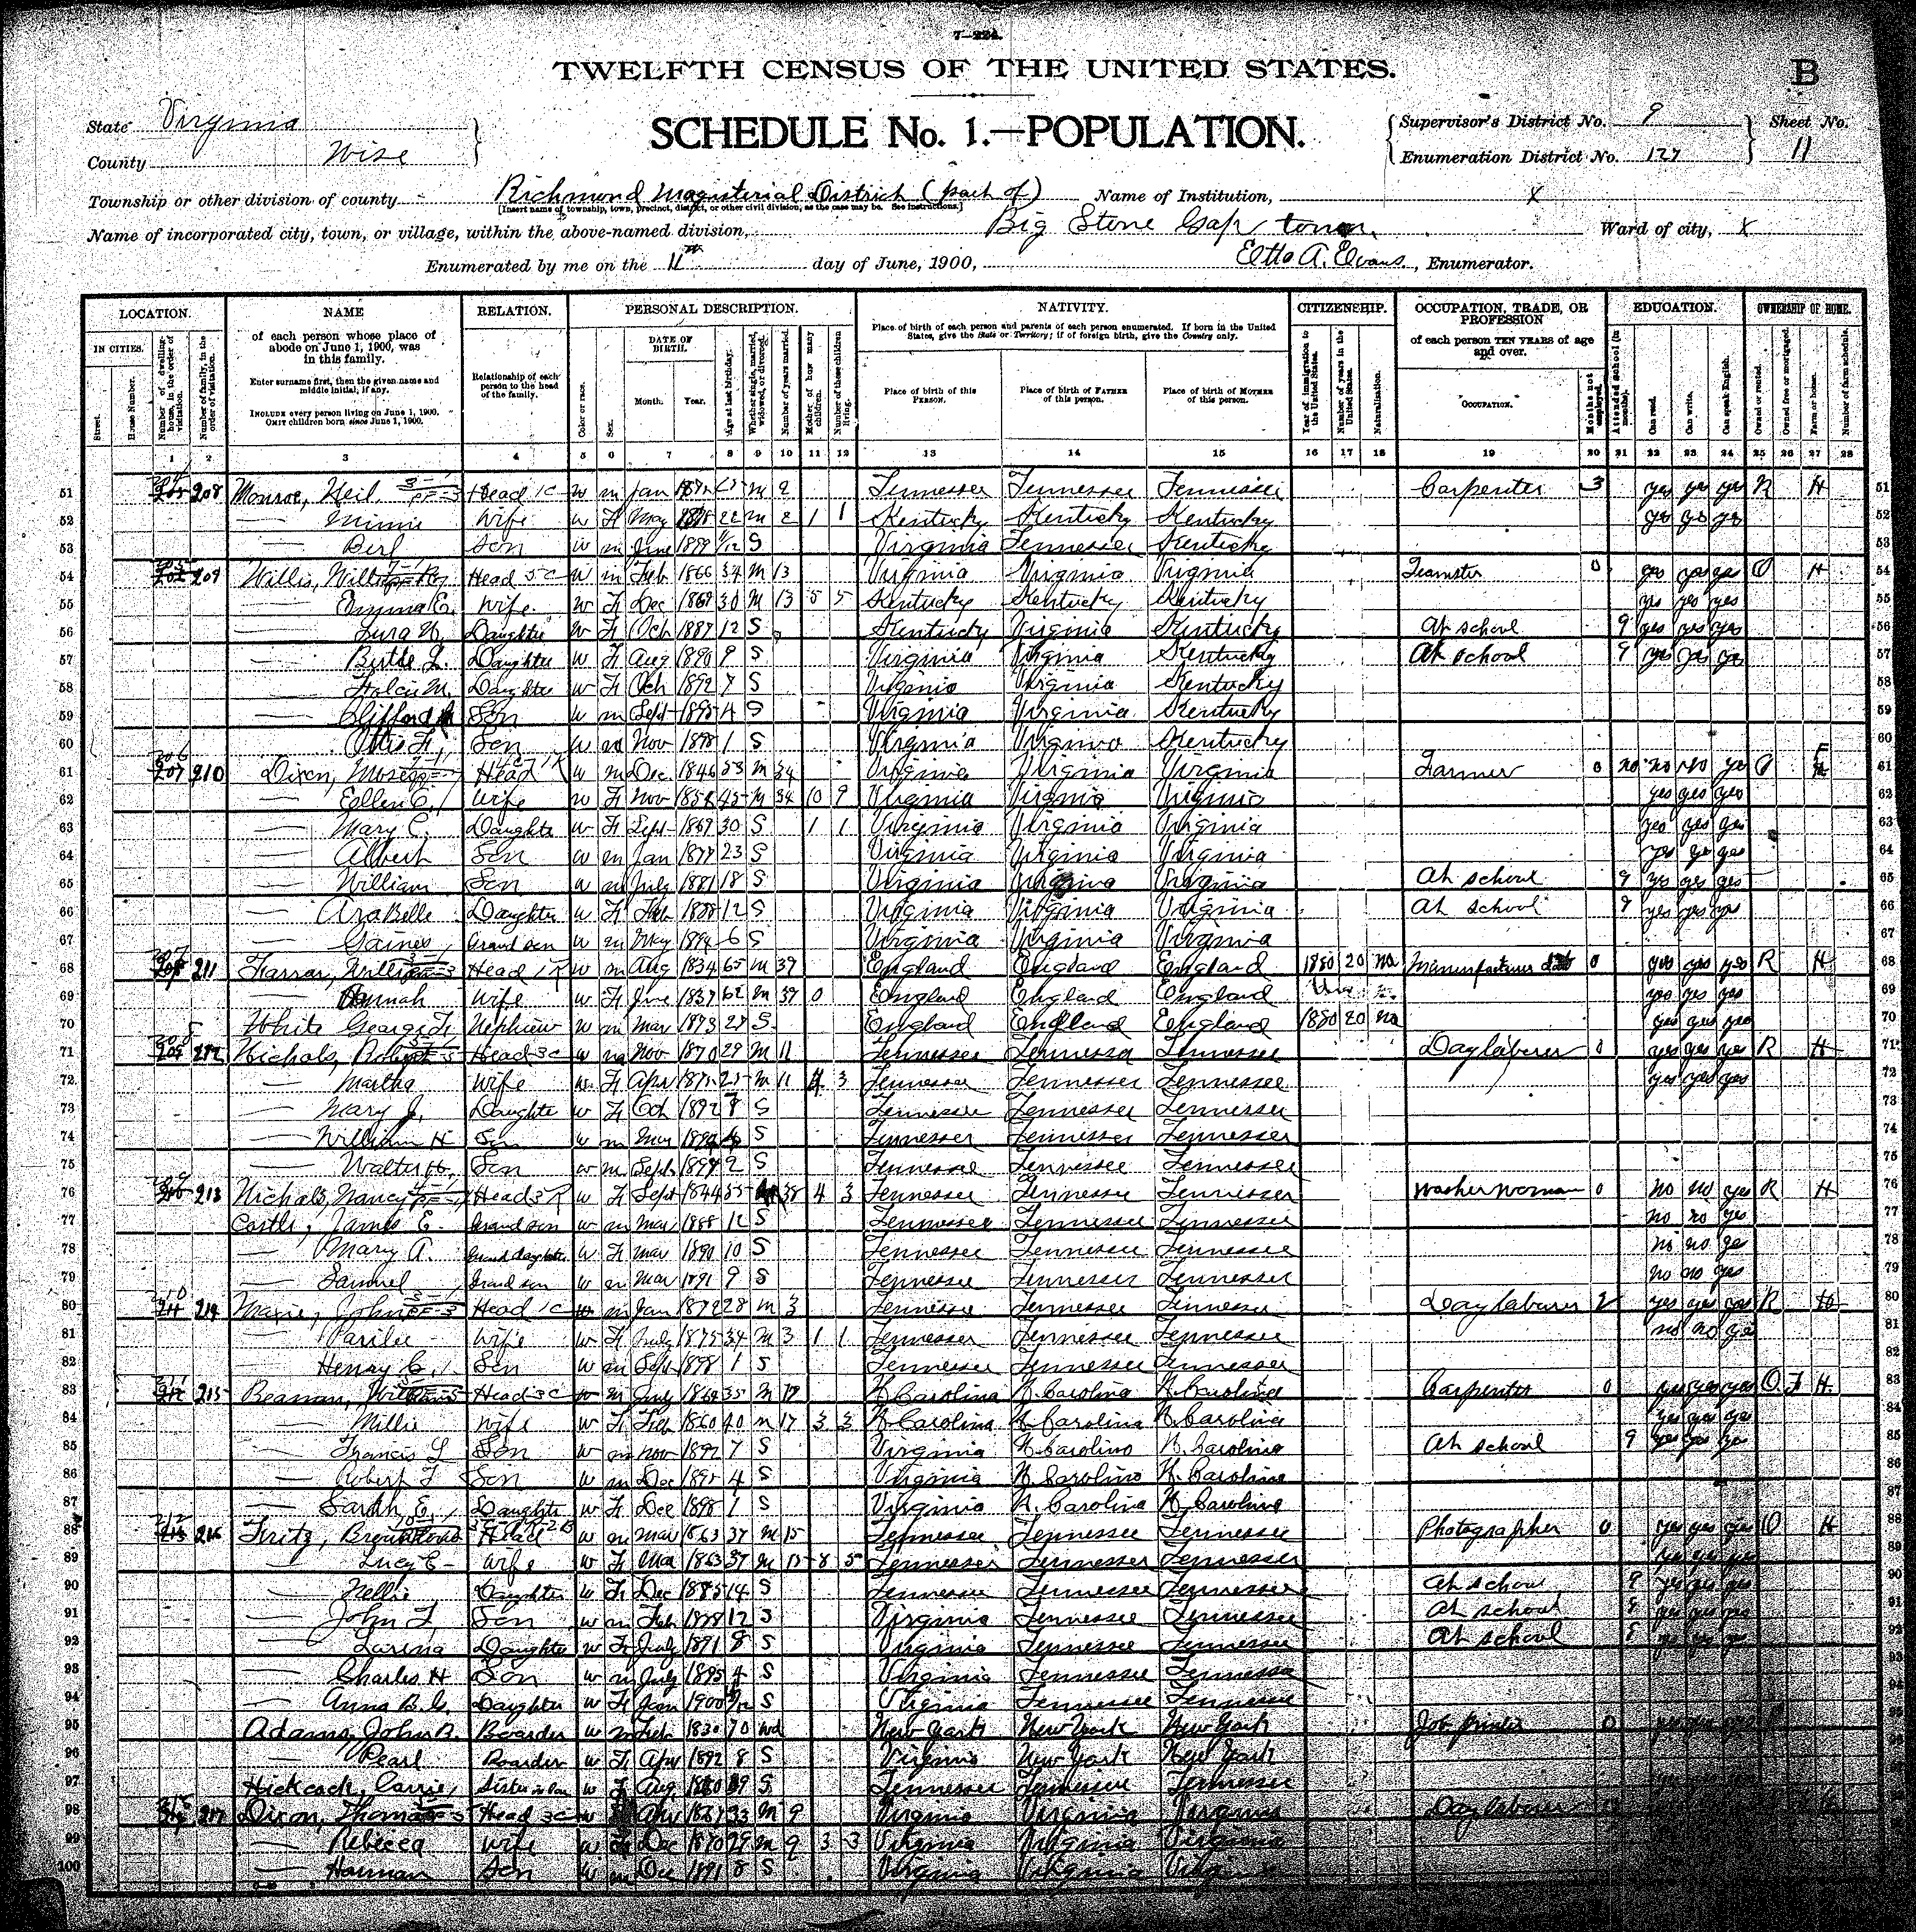 7-224.
TWELFTH CENSUS OF THE UNITED STATES.
B
State Virginia
County Wise
SCHEDULE No. 1.—POPULATION.
Supervisor's District No. 9
Enumeration District No. 127
Sheet No. 11
Township or other division of county Richmond Magisterial District (part of) Name of Institution, X
[Insert name of township, town, precinct, district, or other civil division, as the case may be. See instructions.]
Name of incorporated city, town, or village, within the above-named division, Big Stone Gap town. Ward of city, X
Enumerated by me on the 11th day of June, 1900, Etta A. Evans, Enumerator.
LOCATION. NAME RELATION. PERSONAL DESCRIPTION. NATIVITY. CITIZENSHIP. OCCUPATION, TRADE, OR PROFESSION EDUCATION. OWNERSHIP OF HOME.
IN CITIES. Street. House Number. Number of dwelling-house, in the order of visitation. Number of family, in the order of visitation.
of each person whose place of abode on June 1, 1900, was in this family.
Enter surname first, then the given name and middle initial, if any.
INCLUDE every person living on June 1, 1900. OMIT children born since June 1, 1900.
Relationship of each person to the head of the family.
Color or race. Sex. DATE OF BIRTH. Month. Year. Age at last birthday. Whether single, married, widowed, or divorced. Number of years married. Mother of how many children. Number of these children living.
Place of birth of each person and parents of each person enumerated. If born in the United States, give the State or Territory; if of foreign birth, give the Country only.
Place of birth of this PERSON. Place of birth of FATHER of this person. Place of birth of MOTHER of this person.
Year of immigration to the United States. Number of years in the United States. Naturalization.
of each person TEN YEARS of age and over.
OCCUPATION. Months not employed. Attended school (in months). Can read. Can write. Can speak English. Owned or rented. Owned free or mortgaged. Farm or house. Number of farm schedule.
1 2 3 4 5 6 7 8 9 10 11 12 13 14 15 16 17 18 19 20 21 22 23 24 25 26 27 28
51 208 Monroe, Neil Head W m Jan m 2 Tennessee Tennessee Tennessee Carpenter 3 yes yes yes R H 51
52 Minnie Wife W F May 22 m 2 1 1 Kentucky Kentucky Kentucky yes yes yes 52
53 Son W m June 1899 11/12 S Virginia Tennessee Kentucky 53
54 209 Willis, Head W m Feb 1866 34 M 13 Virginia Virginia Virginia Teamster 0 yes yes yes O H 54
55 Emma E. Wife W F Dec 1869 30 M 13 5 5 Kentucky Kentucky Kentucky yes yes yes 55
56 Daughter W F Oct 1887 12 S Kentucky Virginia Kentucky At school 9 yes yes yes 56
57 Daughter W F Aug 1890 9 S Virginia Virginia Kentucky At school 9 yes yes yes 57
58 Daughter W F Oct 1892 7 S Virginia Virginia Kentucky 58
59 Clifford Son W m Sept 1895 4 S Virginia Virginia Kentucky 59
60 Otis F. Son W m Nov 1898 1 S Virginia Virginia Kentucky 60
61 210 Dixon, Moses Head W m Dec 1846 53 M 34 Virginia Virginia Virginia Farmer 0 no no yes O F 61
62 Ellen C. Wife W F Nov 185 45 M 34 10 9 Virginia Virginia Virginia yes yes yes 62
63 Mary C. Daughter W F Sept 1869 30 S 1 1 Virginia Virginia Virginia yes yes yes 63
64 Albert Son W m Jan 1877 23 S Virginia Virginia Virginia yes yes yes 64
65 William Son W m July 1881 18 S Virginia Virginia Virginia At school 9 yes yes yes 65
66 AraBelle Daughter W F Feb 1888 12 S Virginia Virginia Virginia At school 9 yes yes yes 66
67 Gaines Grand son W m May 1894 6 S Virginia Virginia Virginia 67
68 211 Farrar, William Head W m Aug 1834 65 M 39 England England England 1880 20 na Manufacturer 0 yes yes yes R H 68
69 Hannah Wife W F June 1837 62 M 39 0 England England England yes yes yes 69
70 White George F. Nephew W m Mar 1873 27 S England England England 1880 20 na yes yes yes 70
71 212 Nichols, Robert Head W m Nov 1870 29 M 11 Tennessee Tennessee Tennessee Day laborer 0 yes yes yes R H 71
72 Martha Wife W F Apr 1875 25 M 11 4 3 Tennessee Tennessee Tennessee yes yes yes 72
73 Mary J. Daughter W F Oct 1892 7 S Tennessee Tennessee Tennessee 73
74 William H Son W m May 1894 6 S Tennessee Tennessee Tennessee 74
75 Walter H. Son W m Sept 1897 2 S Tennessee Tennessee Tennessee 75
76 213 Nichols, Nancy Head W F Sept 1844 55 38 4 3 Tennessee Tennessee Tennessee Washer woman 0 no no yes R H 76
77 Castle, James E. Grand son W m Mar 1888 12 S Tennessee Tennessee Tennessee no no yes 77
78 Mary A. Grand daughter W F Mar 1890 10 S Tennessee Tennessee Tennessee no no yes 78
79 Samuel Grand son W m Mar 1891 9 S Tennessee Tennessee Tennessee no no yes 79
80 214 Maxie, John Head W m Jan 1872 28 M 3 Tennessee Tennessee Tennessee Day laborer 2 yes yes yes R H 80
81 Parilee Wife W F July 1875 M 3 1 1 Tennessee Tennessee Tennessee no no yes 81
82 Henry C. Son W m Sept 1898 1 S Tennessee Tennessee Tennessee 82
83 215 Beaman, William Head W m July 1864 35 M 17 N. Carolina N. Carolina N. Carolina Carpenter 0 yes yes yes O F H 83
84 Millie Wife W F Feb 1860 40 m 17 3 3 N. Carolina N. Carolina N. Carolina yes yes yes 84
85 Francis L Son W m Nov 1892 7 S Virginia N. Carolina N. Carolina At school 9 yes yes yes 85
86 Robert F Son W m Dec 1895 4 S Virginia N. Carolina N. Carolina 86
87 Sarah E. Daughter W F Dec 1898 1 S Virginia N. Carolina N. Carolina 87
88 216 Fritz, Head W m Mar 1863 37 M 15 Tennessee Tennessee Tennessee Photographer 0 yes yes yes O H 88
89 Lucy E Wife W F Mar 1863 37 M 15 8 5 Tennessee Tennessee Tennessee yes yes yes 89
90 Nellie Daughter W F Dec 1885 14 S Tennessee Tennessee Tennessee At school 9 yes yes yes 90
91 John F Son W m Feb 1888 12 S Virginia Tennessee Tennessee At school yes yes 91
92 Larena Daughter W F July 1891 8 S Virginia Tennessee Tennessee At school 92
93 Charles H Son W m July 1895 4 S Virginia Tennessee Tennessee 93
94 Anna B. G. Daughter W F Jan 1900 S Virginia Tennessee Tennessee 94
95 Adams, John B. Boarder W m Feb 1830 70 wd New York New York New York Job printer 0 95
96 Pearl Boarder W F Apr 1892 8 S Virginia New York New York
97 Hickcock, Carrie Sister in law W F Aug S Tennessee Tennessee Tennessee
98 217 Dixon, Thomas Head W Apr 1867 33 M 9 Virginia Virginia Virginia Day laborer
99 Rebecca Wife W F Dec 1870 29 M 9 3 3 Virginia Virginia Virginia
100 Harman Son W m Dec 1891 8 S Virginia Virginia Virginia